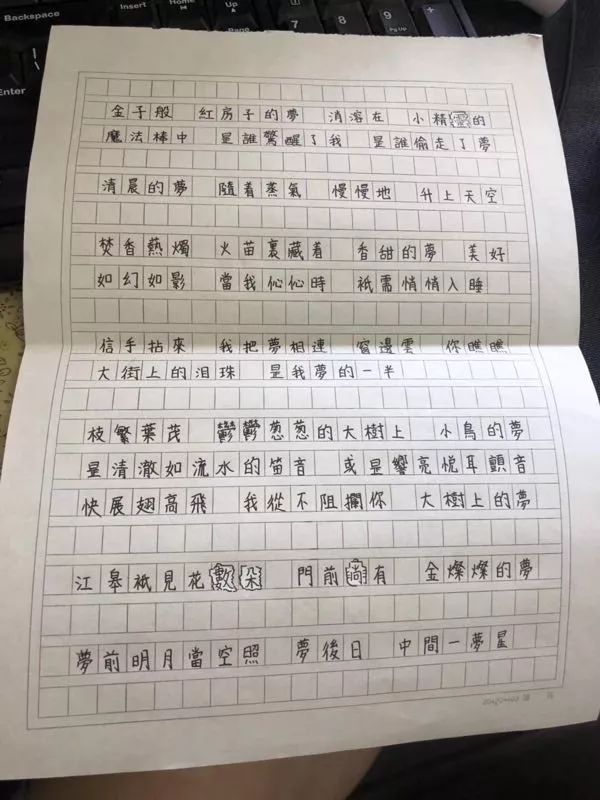 Backspace
Insert
Home
Up
PgUp
7
8
9
Enter
金子般 紅房子的夢 消溶在 小精靈的
魔法棒中 是誰驚醒了我 是誰偷走了夢
清晨的夢 隨着蒸氣 慢慢地 升上天空
焚香熱燭 火苗裏藏着 香甜的夢 美好
如幻如影 當我伈伈時 衹需悄悄入睡
信手拈來 我把夢相連 窗邊雲 你瞧瞧
大街上的泪珠 是我夢的一半
枝繁葉茂 鬱鬱葱葱的大樹上 小鳥的夢
是清澈如流水的笛音 或是響亮悦耳顫音
快展翅高飛 我從不阻攔你 大樹上的夢
江皋衹見花數朵 門前尚有 金燦燦的夢
夢前明月當空照 夢後日 中間一夢星